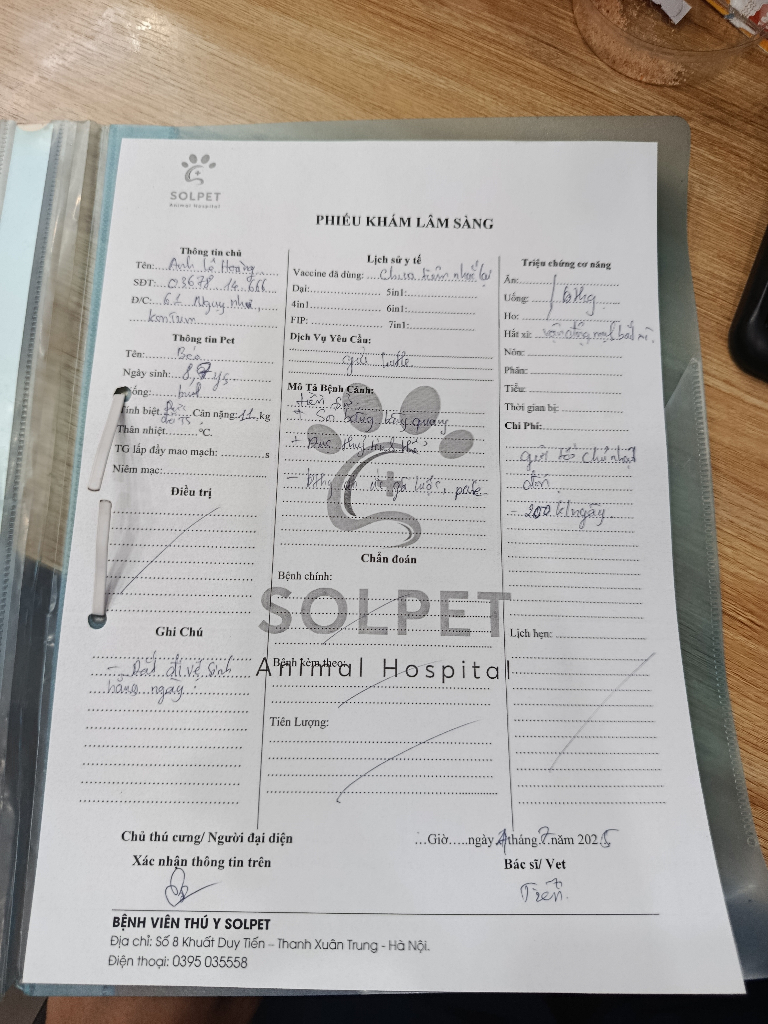 SOLPET
Animal Hospital
PHIẾU KHÁM LÂM SÀNG
Thông tin chủ
Tên: Anh Lê Hoàng
SĐT: 03678 14 666
Đ/C: 61 Nguy như,
kontum
Thông tin Pet
Tên:
Ngày sinh:
Giống: bull
Tính biệt: Cân nặng: 11 kg
Thân nhiệt °C.
TG lấp đầy mao mạch: s
Niêm mạc:
Điều trị
Ghi Chú
- Dắt đi vệ sinh
hằng ngày.
Lịch sử y tế
Vaccine đã dùng: Chưa tiêm nhắc lại
Dại: 5in1:
4in1 6in1:
FIP: 7in1:
Dịch Vụ Yêu Cầu:
gửi
Mô Tả Bệnh Cảnh:
tiền sử
+ quang
+ Đục thuỷ tinh thể
- gà luộc, pate
Chẩn đoán
Bệnh chính:
SOLPET
Animal Hospital
Bệnh kèm theo:
Tiên Lượng:
Triệu chứng cơ năng
Ăn:
Uống:
Ho:
Hắt xì:
Nôn:
Phân:
Tiểu:
Thời gian bị:
Chi Phí:
gửi từ chủ nhật
- 200k/ngày
Lịch hẹn:
Chủ thú cưng/ Người đại diện
Xác nhận thông tin trên
…Giờ…..ngày tháng 7 năm 2025
Bác sĩ/ Vet
BỆNH VIỆN THÚ Y SOLPET
Địa chỉ: Số 8 Khuất Duy Tiến – Thanh Xuân Trung - Hà Nội.
Điện thoại: 0395 035558